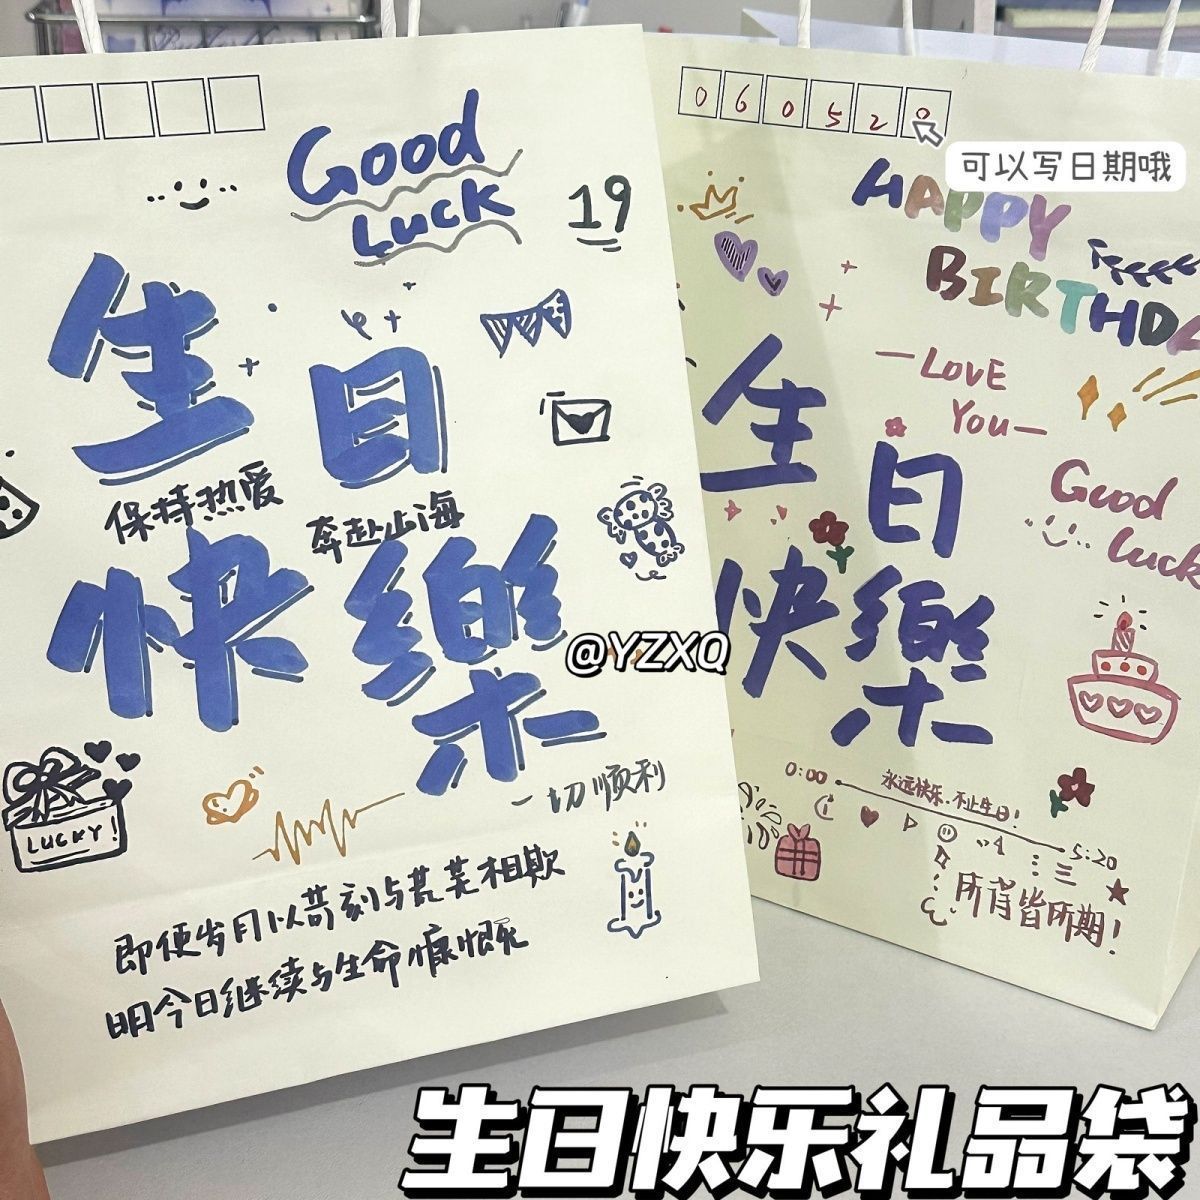 Good
Luck
19
生日
保持热爱
奔赴山海
快樂
LUCKY!
一切顺利
即便岁月以苛刻与荒芜相欺
明今日继续与生命慷慨死
060520
可以写日期哦
HAPPY
BIRTHDA
—LOVE
YOU—
Good
luck
生日
快樂
0:00
永远快乐,不止生日!
5:20
所得皆所期!
@YZXQ
生日快乐礼品袋